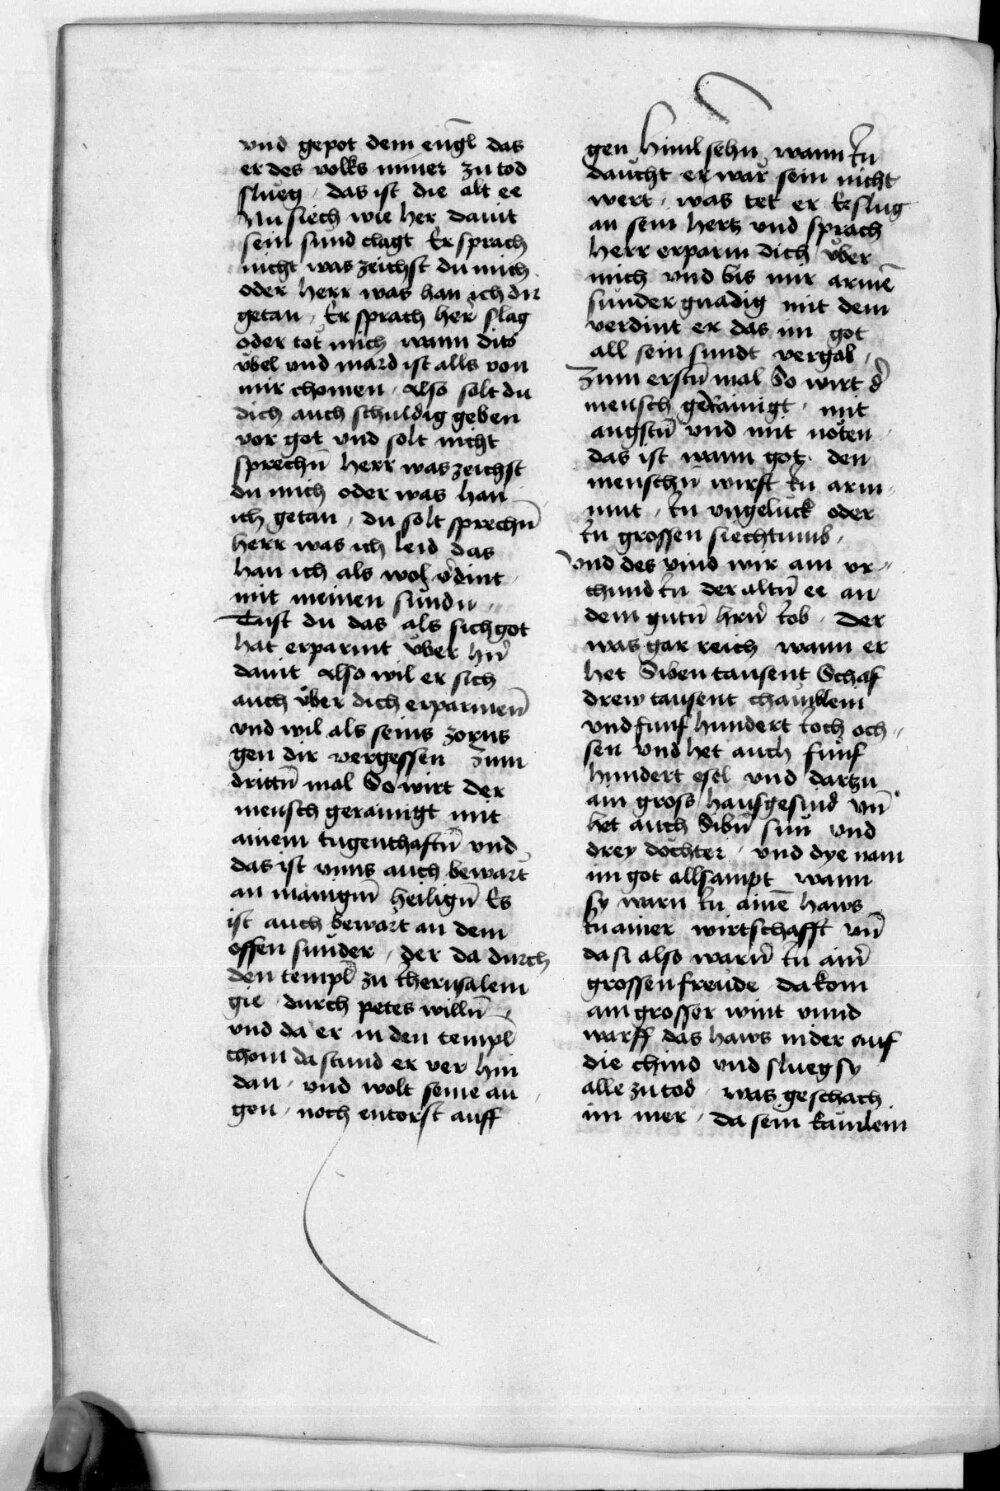 vnd gepot dem engl das
er des volks nimer zu tod
slueg · das ist die alt ee
Nu siech wie her dauit
sein sund clagt Er sprach
nicht was zeichst du mich
oder herr was han ich dir
getan · Er sprach her slag
oder töt mich wann ditz
übel vnd mard ist alls von
mir chomen · Also solt du
dich auch schuldig geben
vor got vnd solt nicht
sprechn̄ herr was zeichst
du mich oder was han
ich getan · du solt sprechn̄
herr was ich leid das
han ich als wol v̄dint
mit meinen sundn
Tust du das als sich got
hat erparmt über hn̄
dauit Also wil er sich
auch über dich erparmen̄
vnd wil als seins zorns
gen dir vergessen Zum
drittn̄ mal So wirt der
mensch gerainigt mit
ainem tugenthaftn̄ vnd
das ist vnns auch bewart
an manigm̄ heilign̄ Es
ist auch bewart an dem
offen sunder · der da durch
den templ zu Iherusalem
gie · durch petes willn̄
vnd da er in den templ
chom da stund er ver hin
dan · vnd wolt seine au
gen · noch entorst auff
gen himl sehn wann In
daucht er war sein nicht
wert · was tet er Er slug
an sein hertz vnd sprach
herr erparm dich über
mich vnd bis mir armē
sunder gnadig mit dem
verdint er das im got
all sein sundt vergab ·
Zum erstn̄ mal So wirt d̄
mensch gerainigt · mit
angstn̄ vnd mit nöten
das ist wann got · den
menschn̄ wirft In arm
mut · In vngelück oder
In grossen siechtumb ·
Vnd des vind wir am vr
chund In der altn̄ ee an
dem gutn̄ hrn̄ Iob · Der
was gar reich wann er
het Siben tausent Schaf
drew tausent chamlein
vnd funf hundert Ioch och
sen vnd het auch funf
hundert esel vnd dartzu
ain gross hausgesind vn̄
het auch Sibn̄ sun vnd
drey dochter · vnd dye nam
im got allsampt wann
sy warn In ainē haws
In ainer wirtschafft vn̄
da si also warn̄ In aīr
grossen freude da kom
ain grosser wint vnnd
warff das haws nider auf
die chind vnd slueg sy
alle zu tod · was geschach
im mer · da sein kamlein